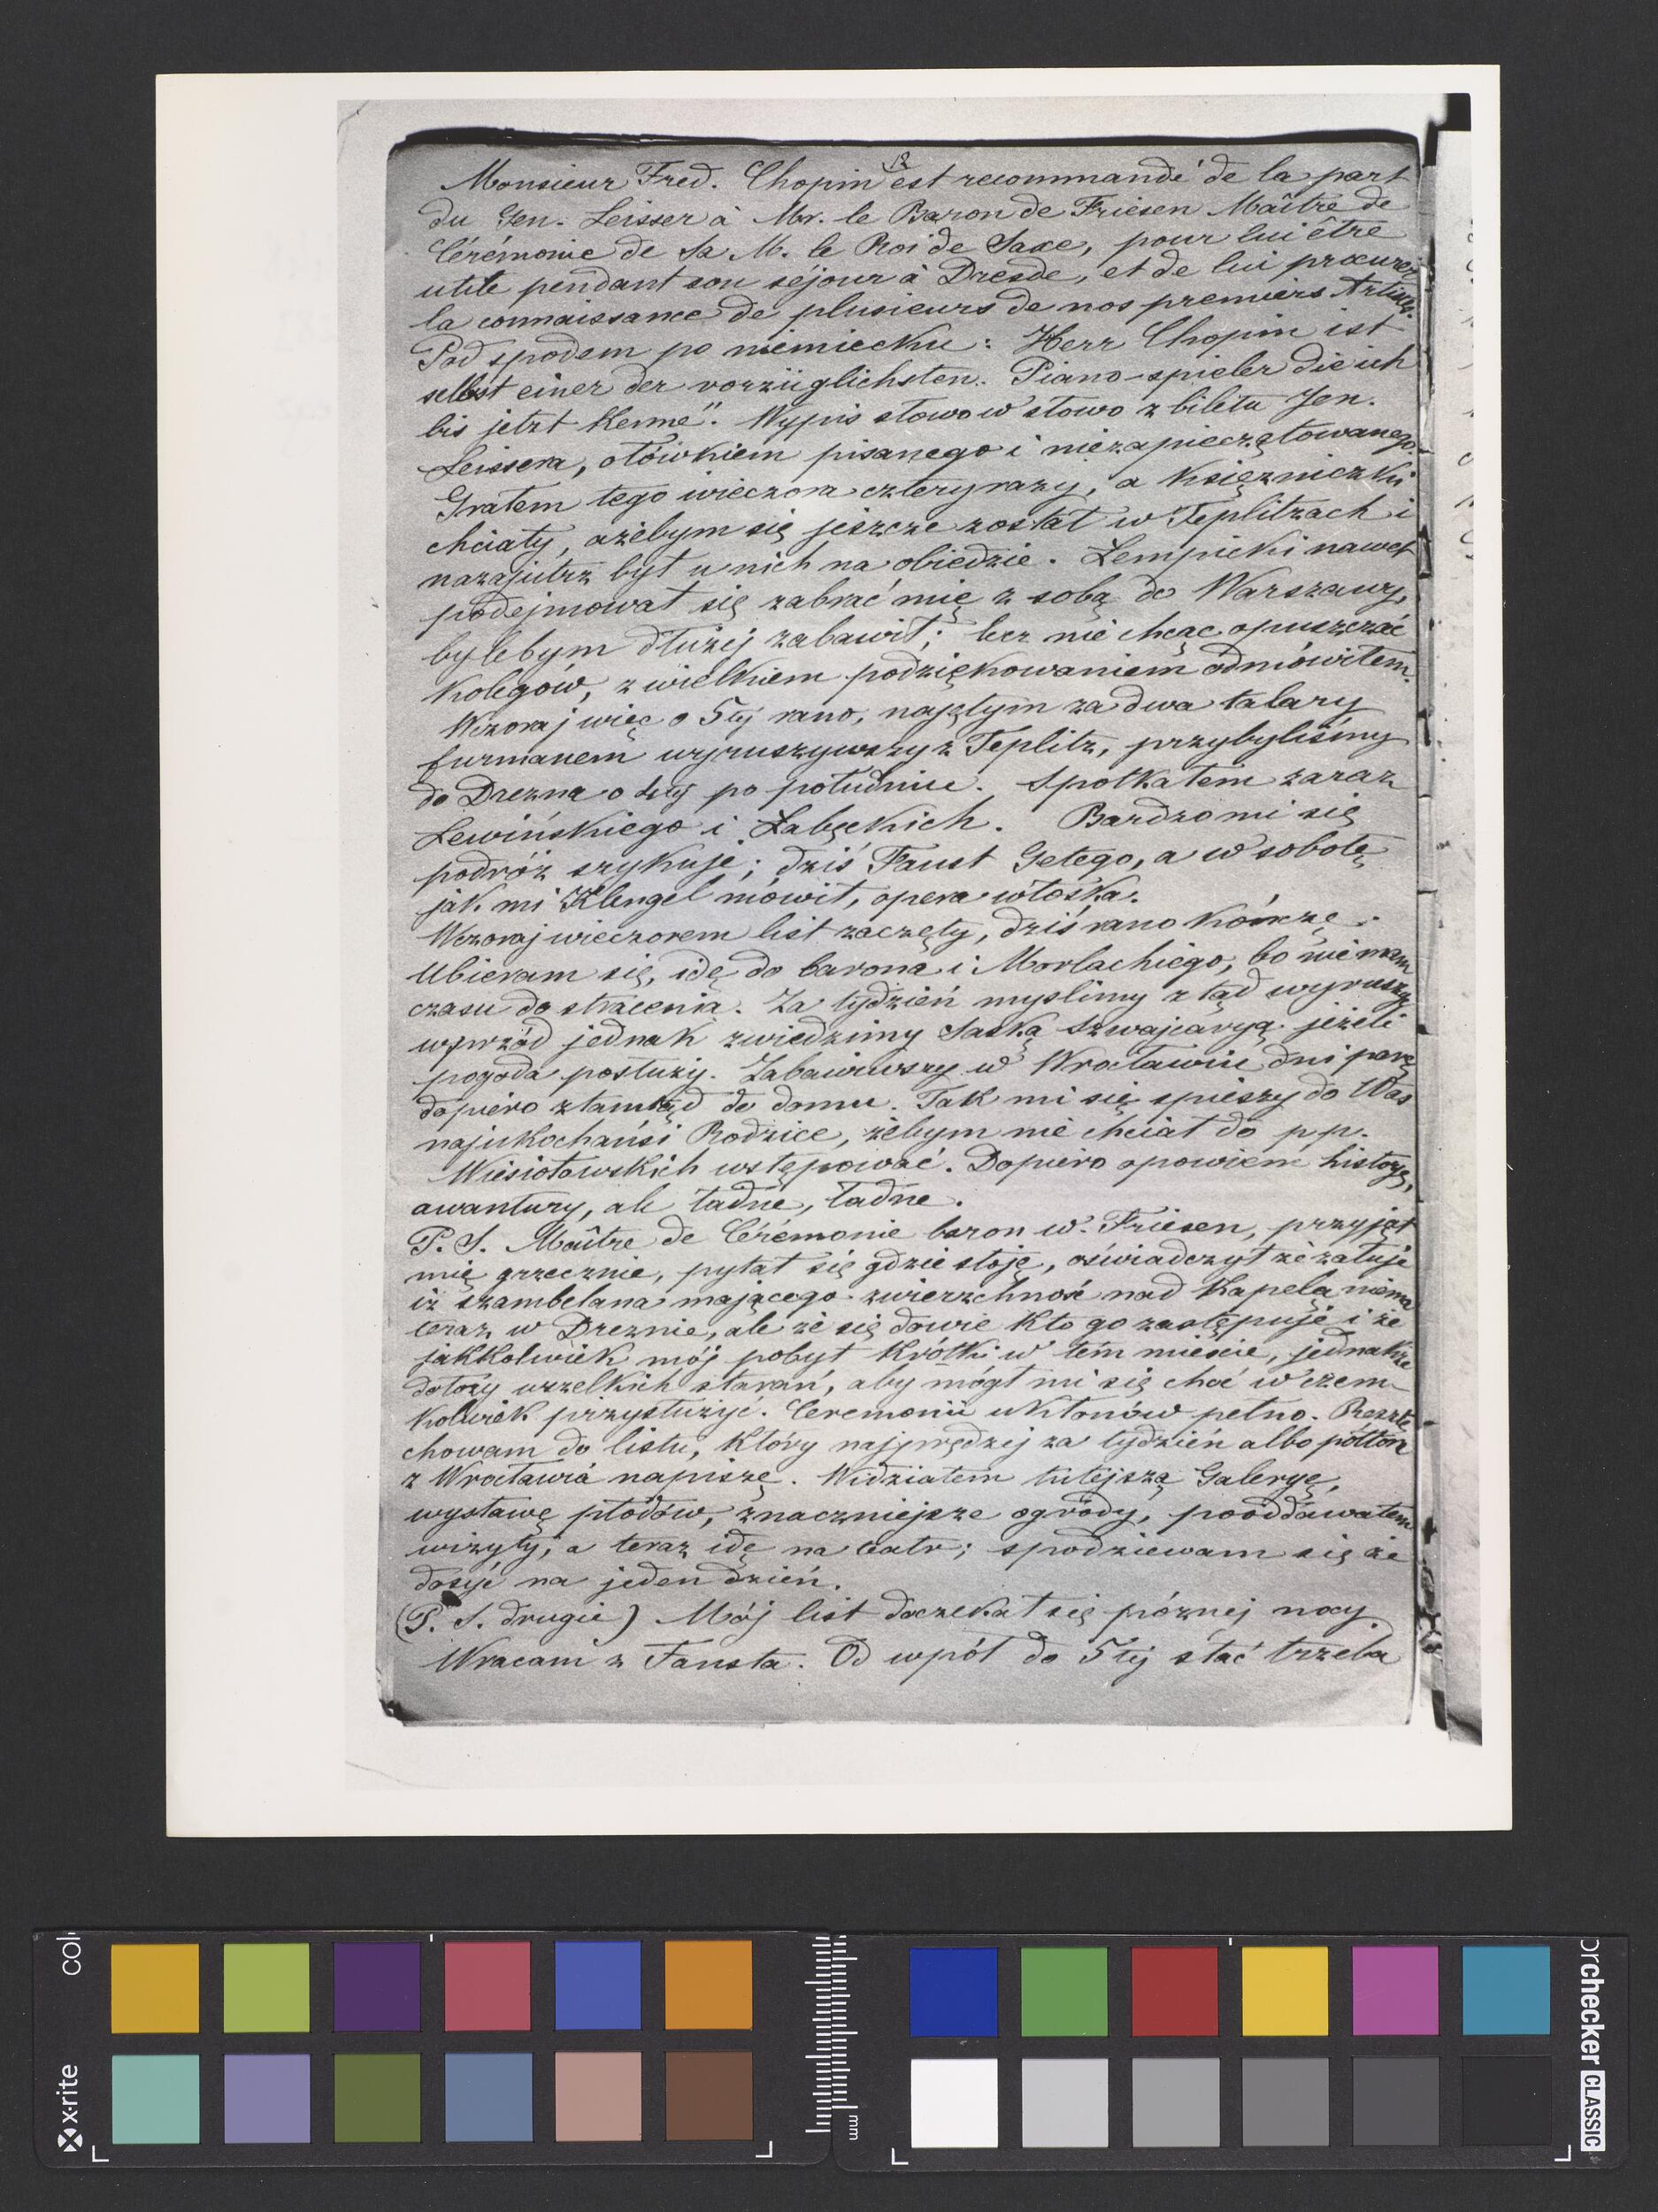 12
Monsieur Fred. Chopin est recommandé de la part
du Gen. Leisser à Mr. le Baron de Friesen Maître de
Cérémonie de Sa M. le Roi de Saxe, pour lui être
utile pendant son séjour à Dresde, et de lui procurer
la connaissance de plusieurs de nos premiers Artistes.
Pod spodem po niemiecku: Herr Chopin ist
selbst einer der vorzüglichsten Piano-spieler die ich
bis jetzt kenne". Wypis słowo w słowo z biletu Jen.
Leissera, ołówkiem pisanego i niezapieczętowanego.
Grałem tego wieczora cztery razy, a księżniczki
chciały, ażebym się jeszcze został w Teplitzach i
nazajutrz był u nich na obiedzie. Łempicki nawet
podejmował się zabrać mię z sobą do Warszawy,
bylebym dłużej zabawił; lecz nie chcąc opuszczać
kolegów, z wielkiem podziękowaniem odmówiłem.
Wczoraj więc o 5tej rano, najętym za dwa talary
furmanem wyruszywszy z Teplitz, przybyliśmy
do Drezna o 4tej po południu. Spotkałem zaraz
Lewińskiego i Łabęckich. Bardzo mi się
podróż szykuje; dziś Faust Getego, a w sobotę
jak mi Klengel mówił, opera włoska.
Wczoraj wieczorem list zaczęty, dziś rano kończę.
Ubieram się, idę do barona i Morlachiego, bo nie mam
czasu do stracenia. Za tydzień myslimy z tąd wyruszyć
wprzód jednak zwiedzimy Saską Szwajcaryą jeżeli
pogoda posłuży. Zabawiwszy w Wrocławiu dni parę
dopiero ztamtąd do domu. Tak mi się spieszy do Was
najukochańsi Rodzice, żebym nie chciał do pp.
Wiesiołowskich wstępować. Dopiero opowiem historye,
awantury, ale ładne, ładne.
P. S. Maître de Cérémonie baron w. Friesen, przyjął
mię grzecznie, pytał się gdzie stoję, oświadczył że żałuje
iż szambelana mającego zwierzchność nad kapelą niema
teraz w Dreznie, ale że się dowie kto go zastępuje i że
jakkolwiek mój pobyt krótki w tém mieście, jednakże
dołoży wszelkich starań, aby mógł mi się choć w czem-
kolwiek przysłużyć. Ceremonii ukłonów pełno. Resztę
chowam do listu, który najprędzej za tydzień albo półtora
z Wrocławia napiszę. Widziałem tutejszą Galeryę,
wystawę płodów, znaczniejsze ogrody, pooddawałem
wizyty, a teraz idę na teatr; spodziewam się że
dosyć na jeden dzień.
(P. S. drugie) Mój list doczekał się późnej nocy.
Wracam z Fausta. Od wpół do 5tej stać trzeba
x-rite
col
mm
orchecker CLASSIC